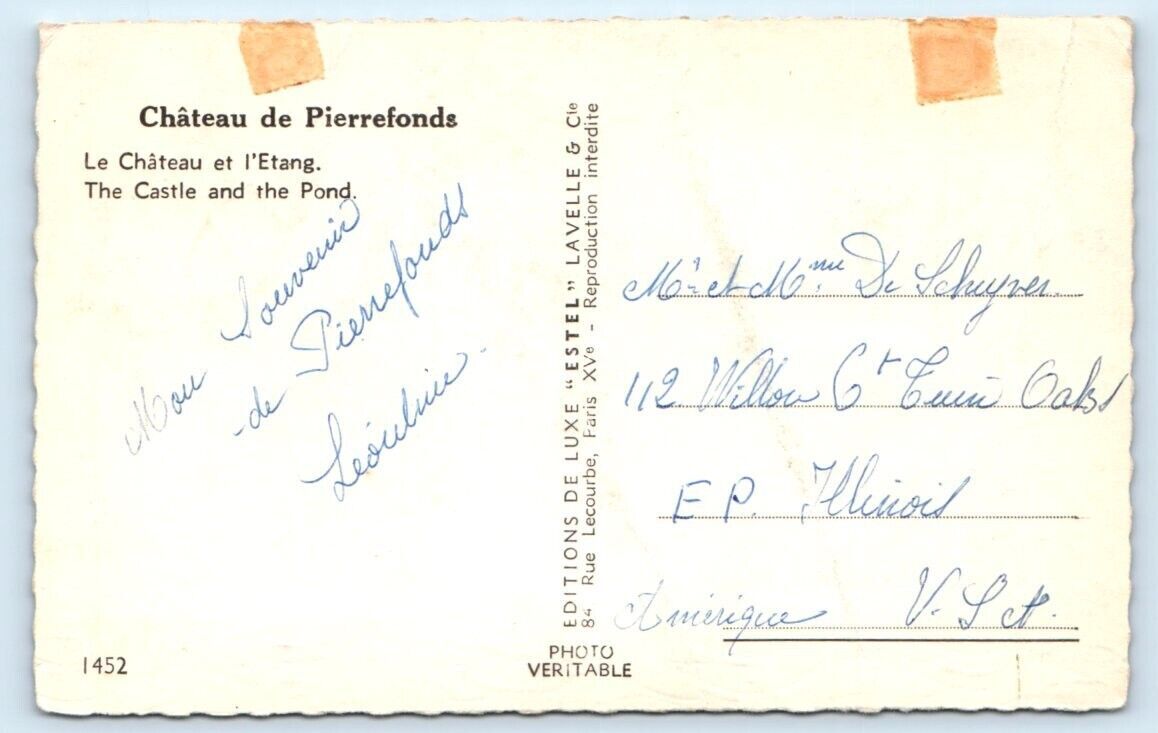 Château de Pierrefonds
Le Château et l'Etang.
The Castle and the Pond.
Mon Souvenir
de Pierrefonds
EDITIONS DE LUXE "ESTEL" LAVELLE & Cie
84 Rue Lecourbe, Paris XVe - Reproduction interdite
Mr et Mme De Schuyver
112 Willow Ct Twin Oaks
E P. Illinois
Amérique U.S.A.
1452
PHOTO
VERITABLE